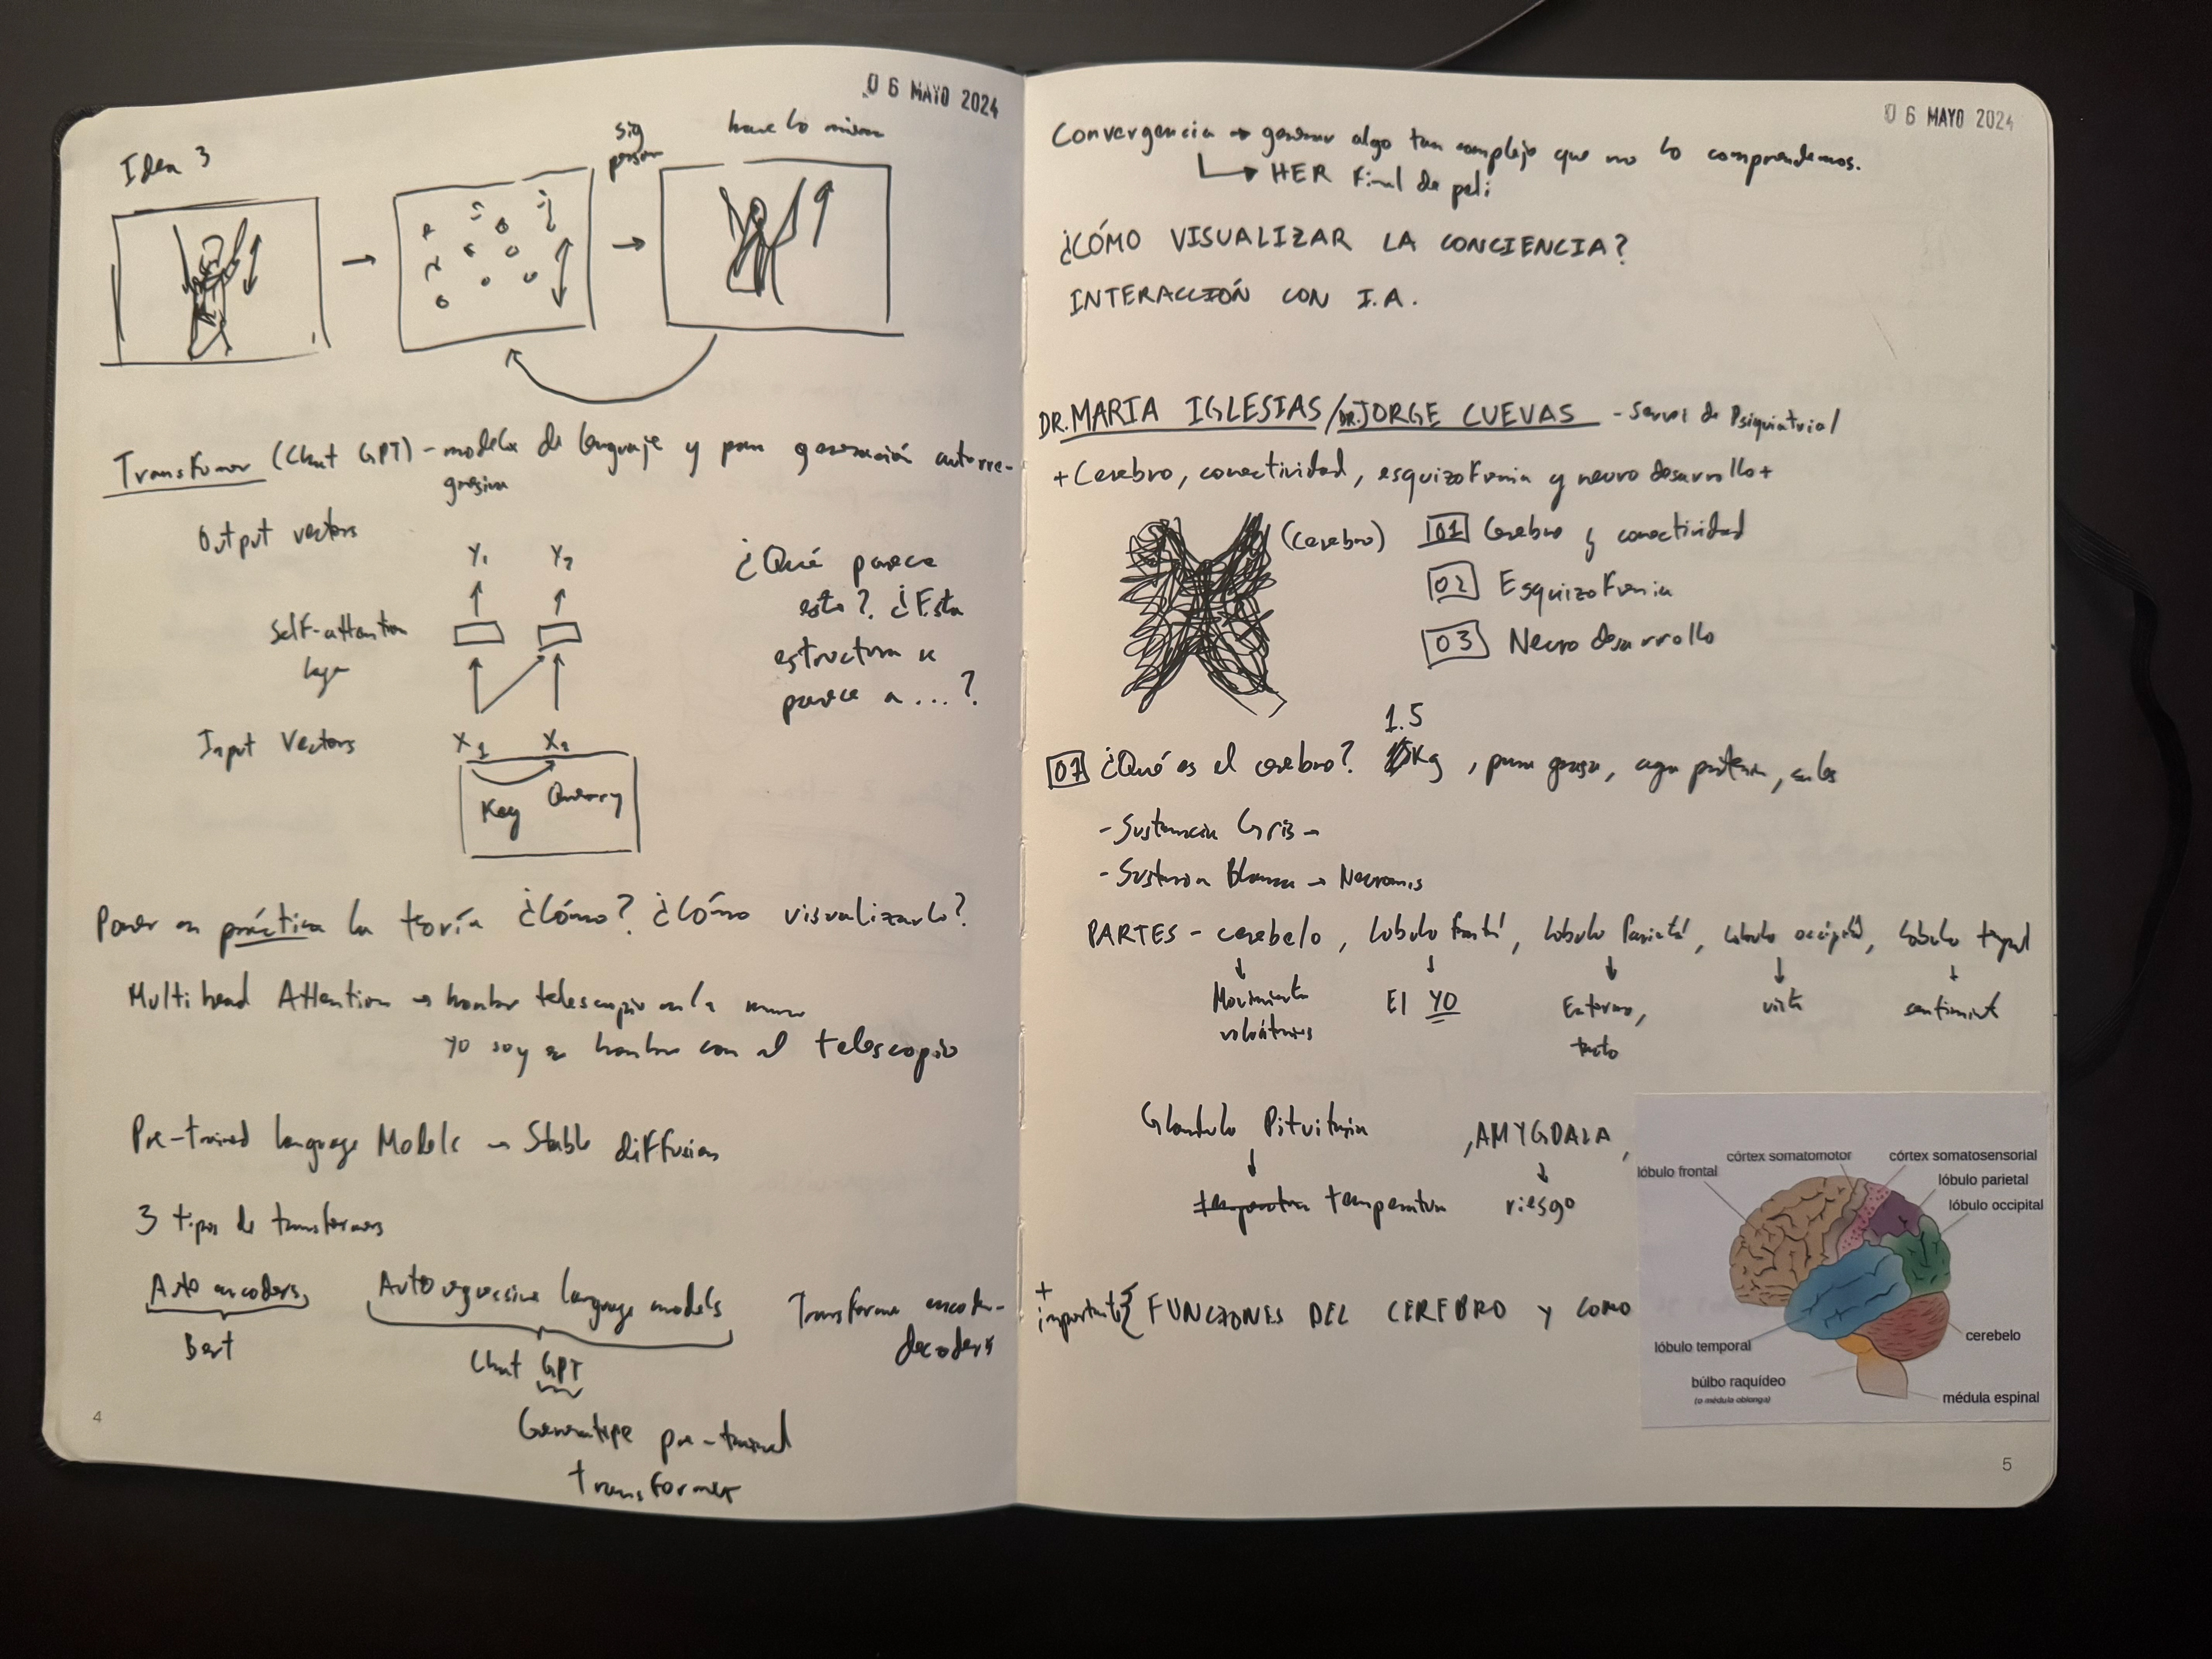 06 MAYO 2024
Idea 3
sig
person
hace lo mismo
Transformer (Chat GPT) - modelos de lenguaje y para generación autorre-
gresiva
Output vectors
Y1 Y2
Self-attention
layer
Input Vectors
X1 X2
Key Query
¿Qué parece
esto? ¿Esta
estructura se
parece a ...?
Poner en práctica la teoría ¿Cómo? ¿Cómo visualizarlo?
Multi head Attention → hombre telescopio en la mano
Yo soy un hombre con el telescopio
Pre-trained language Models → Stable diffusion
3 tipos de transformers
Auto encoders
Bert
Auto regressive language models
Chat GPT
Generatipe pre-trained
transformer
Transformer encoder-
decoders
4
06 MAYO 2024
Convergencia → generar algo tan complejo que no lo comprendemos.
HER Final de peli
¿CÓMO VISUALIZAR LA CONCIENCIA?
INTERACCIÓN CON I.A.
DR. MARIA IGLESIAS / DR. JORGE CUEVAS - Servei de Psiquiatria
+ Cerebro, conectividad, esquizofrenia y neuro desarrollo +
(cerebro)
01 Cerebro y conectividad
02 Esquizofrenia
03 Neuro desarrollo
1.5
01 ¿Qué es el cerebro? Kg, pura grasa, agua proteina, sales
- Sustancia Gris -
- Sustancia Blanca → Neuronas
PARTES - cerebelo, lobulo frontal, lobulo Parietal, lobulo occipital, lobulo temporal
Movimientos
voluntarios
El YO
Entorno,
tacto
vista
sentimient
Glandula Pituitaria
temperatura temperatura
, AMYGDALA,
riesgo
+
importante { FUNCIONES DEL CEREBRO Y COMO
córtex somatomotor
córtex somatosensorial
lóbulo frontal
lóbulo parietal
lóbulo occipital
lóbulo temporal
cerebelo
búlbo raquídeo
(o médula oblonga)
médula espinal
5